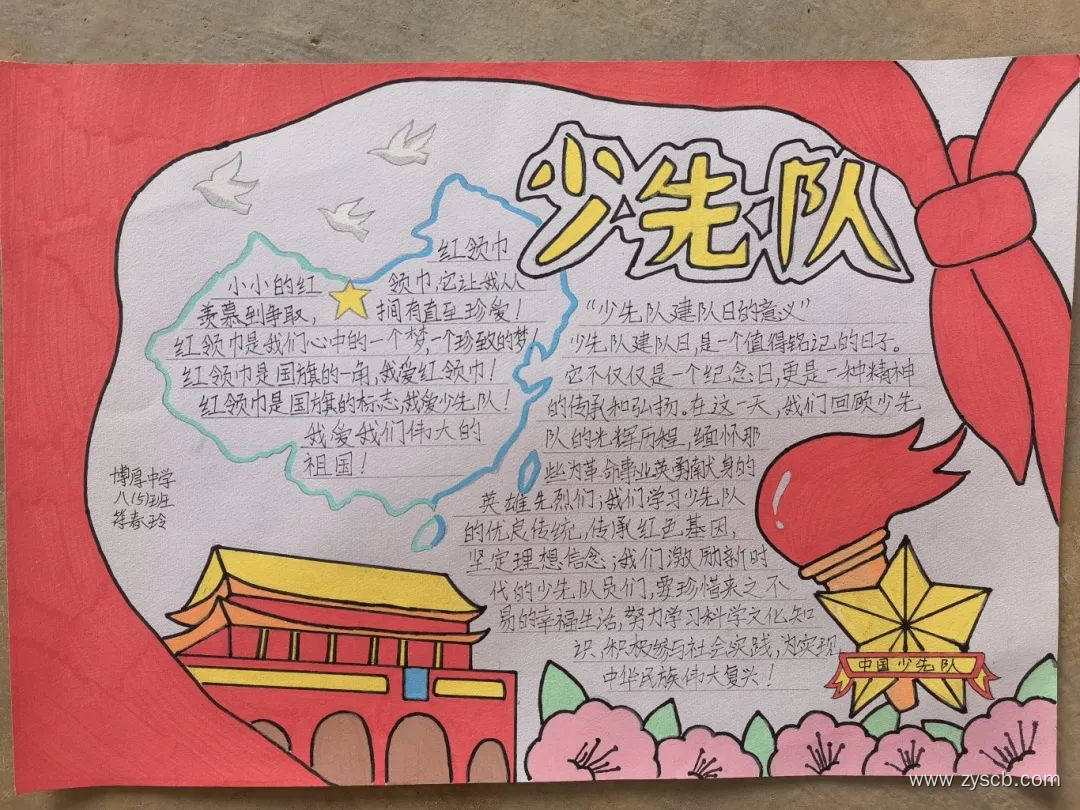 少先队
红领巾
小小的红领巾,它让我从
羡慕到争取,拥有直至珍爱!
红领巾是我们心中的一个梦,一个珍致的梦!
红领巾是国旗的一角,我爱红领巾!
红领巾是国旗的标志,我爱少先队!
我爱我们伟大的
祖国!
博厚中学
八(5)班
春玲
“少先队建队日的意义”
少先队建队日,是一个值得铭记的日子。
它不仅仅是一个纪念日,更是一种精神
的传承和弘扬。在这一天,我们回顾少先
队的光辉历程,缅怀那
些为革命事业英勇献身的
英雄先烈们;我们学习少先队
的优良传统,传承红色基因,
坚定理想信念;我们激励新时
代的少先队员们,要珍惜来之不
易的幸福生活,努力学习科学文化知
识,积极参与社会实践,为实现
中华民族伟大复兴!
中国少先队
www.zyscb.com